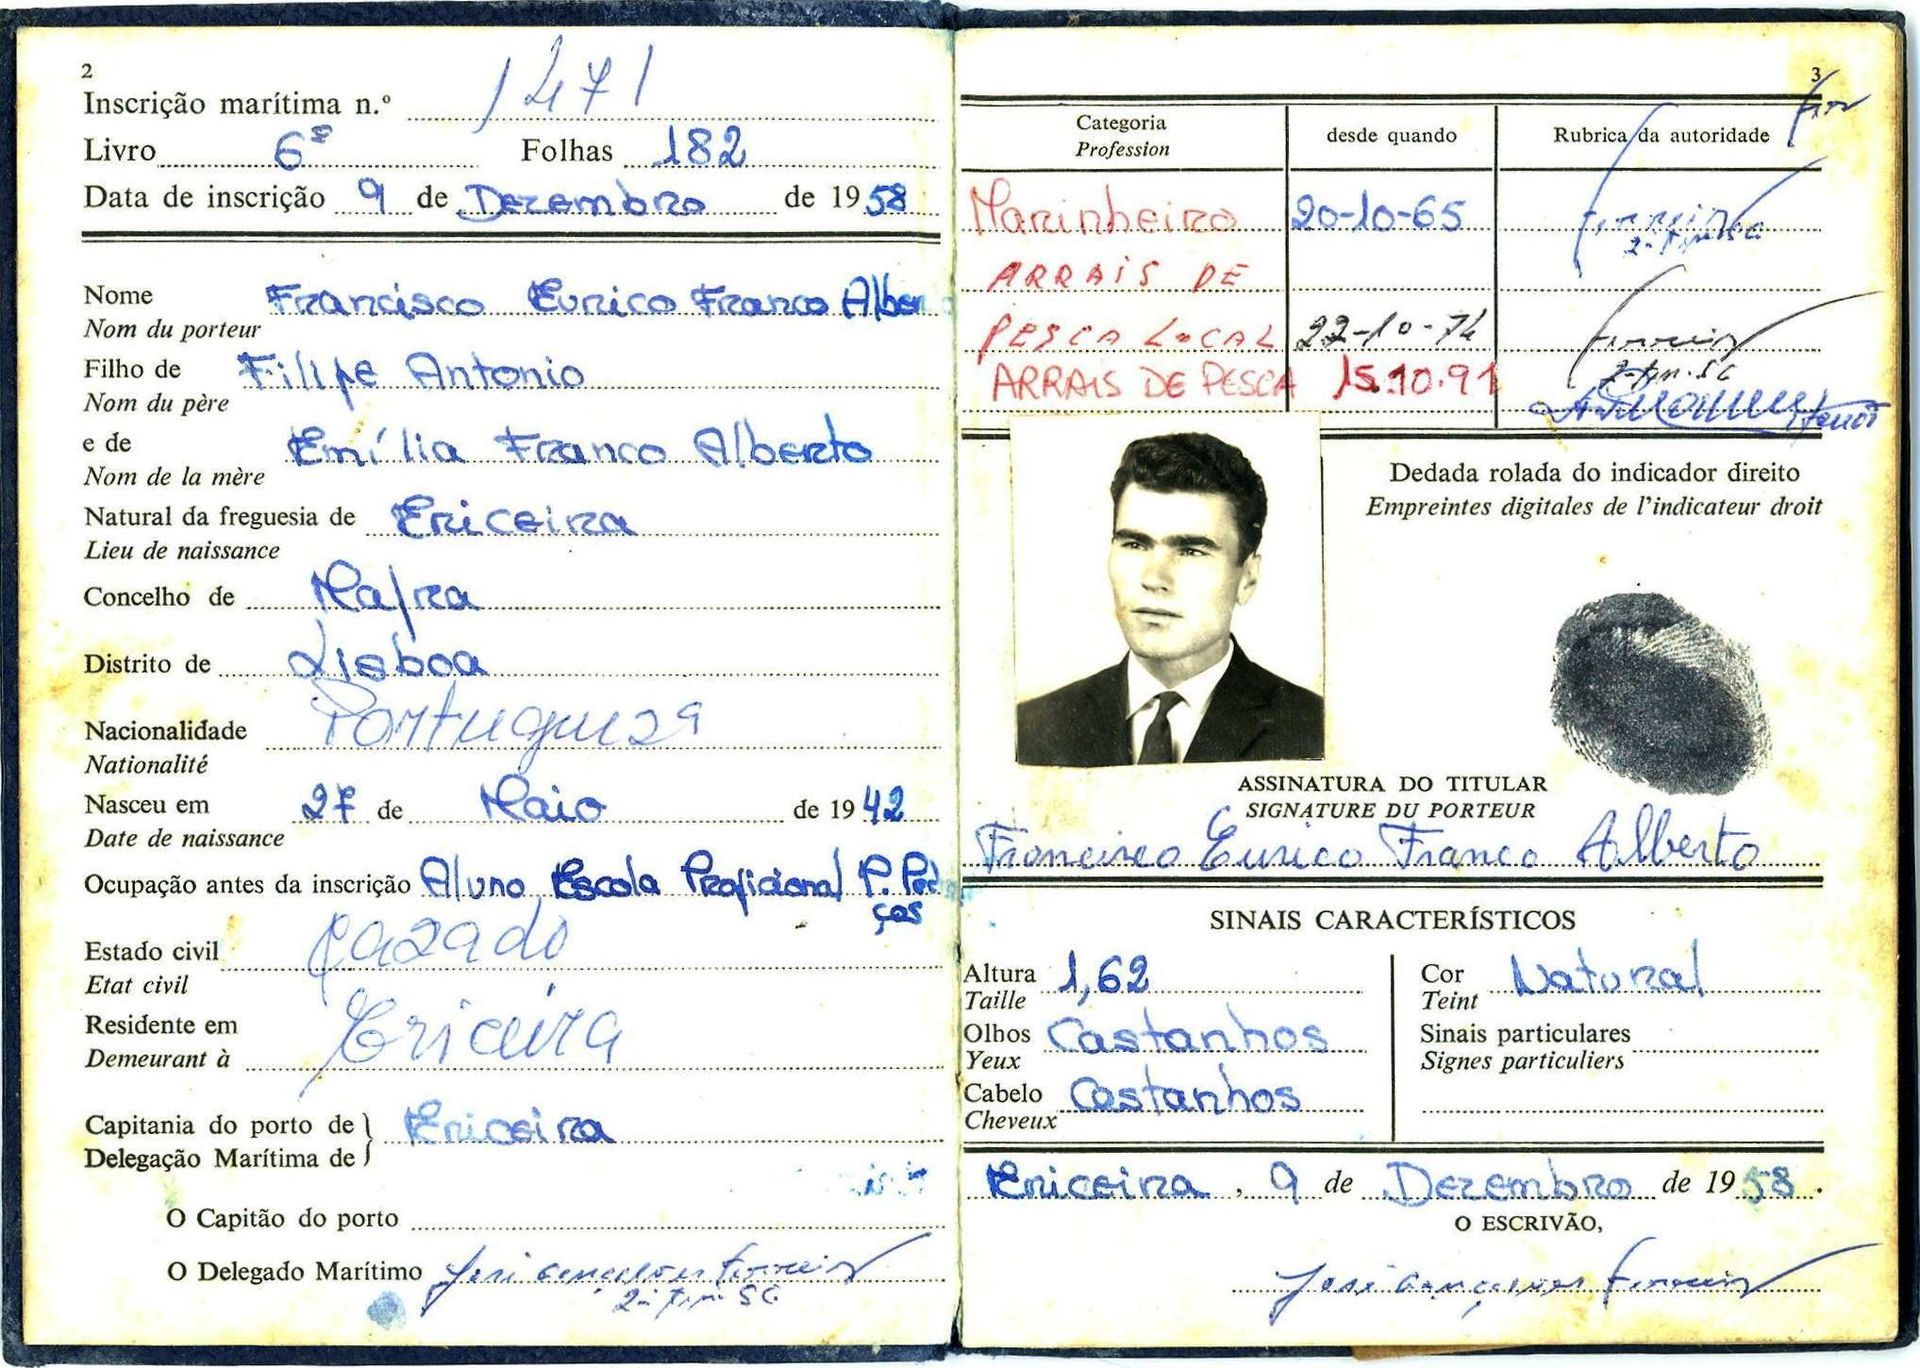 2
Inscrição marítima n.º 1471
Livro 6º Folhas 182
Data de inscrição 9 de Dezembro de 1958
Nome Francisco Eurico Franco Alber
Nom du porteur
Filho de Filipe Antonio
Nom du père
e de Emília Franco Alberto
Nom de la mère
Natural da freguesia de Ericeira
Lieu de naissance
Concelho de Mafra
Distrito de Lisboa
Nacionalidade Portugueza
Nationalité
Nasceu em 27 de Maio de 1942
Date de naissance
Ocupação antes da inscrição Aluno Escola Proficional P.
ços
Estado civil Cazado
Etat civil
Residente em Ericeira
Demeurant à
Capitania do porto de } Ericeira
Delegação Marítima de
O Capitão do porto
O Delegado Marítimo José Gonçalves Ferreira
3
Categoria desde quando Rubrica da autoridade
Profession
Marinheiro 20-10-65 Ferreira
ARRAIS DE
PESCA LOCAL 22-10-74 Ferreira
ARRAIS DE PESCA 15.10.91
Dedada rolada do indicador direito
Empreintes digitales de l'indicateur droit
ASSINATURA DO TITULAR
SIGNATURE DU PORTEUR
Francisco Eurico Franco Alberto
SINAIS CARACTERÍSTICOS
Altura 1,62 Cor Natural
Taille Teint
Olhos Castanhos Sinais particulares
Yeux Signes particuliers
Cabelo Castanhos
Cheveux
Ericeira, 9 de Dezembro de 1958.
O ESCRIVÃO,
José Gonçalves Ferreira